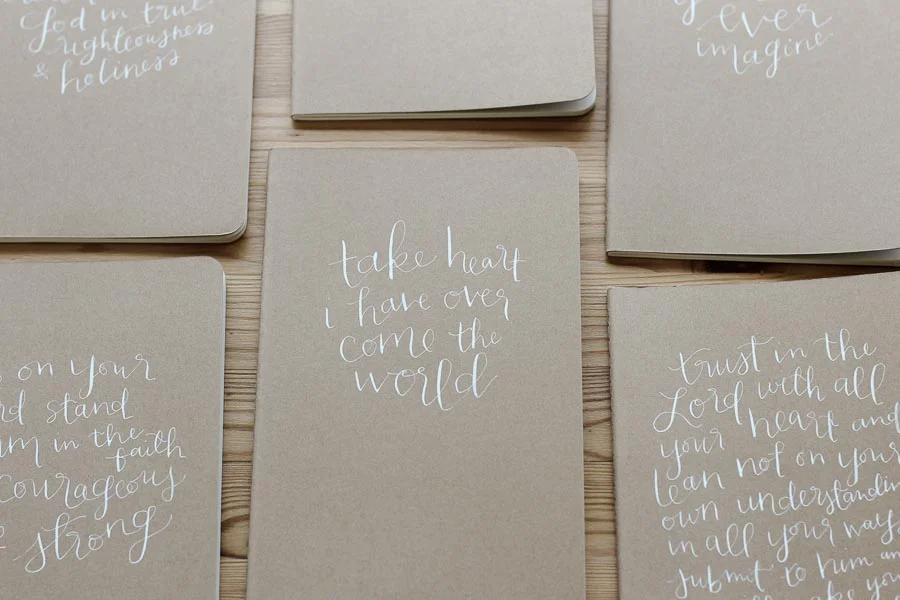 God in true
righteousness
& holiness
ever
imagine
take heart
i have over
come the
world
on your
stand
in the
faith
courageous
strong
trust in the
Lord with all
your heart and
lean not on your
own understanding
in all your ways
submit to him